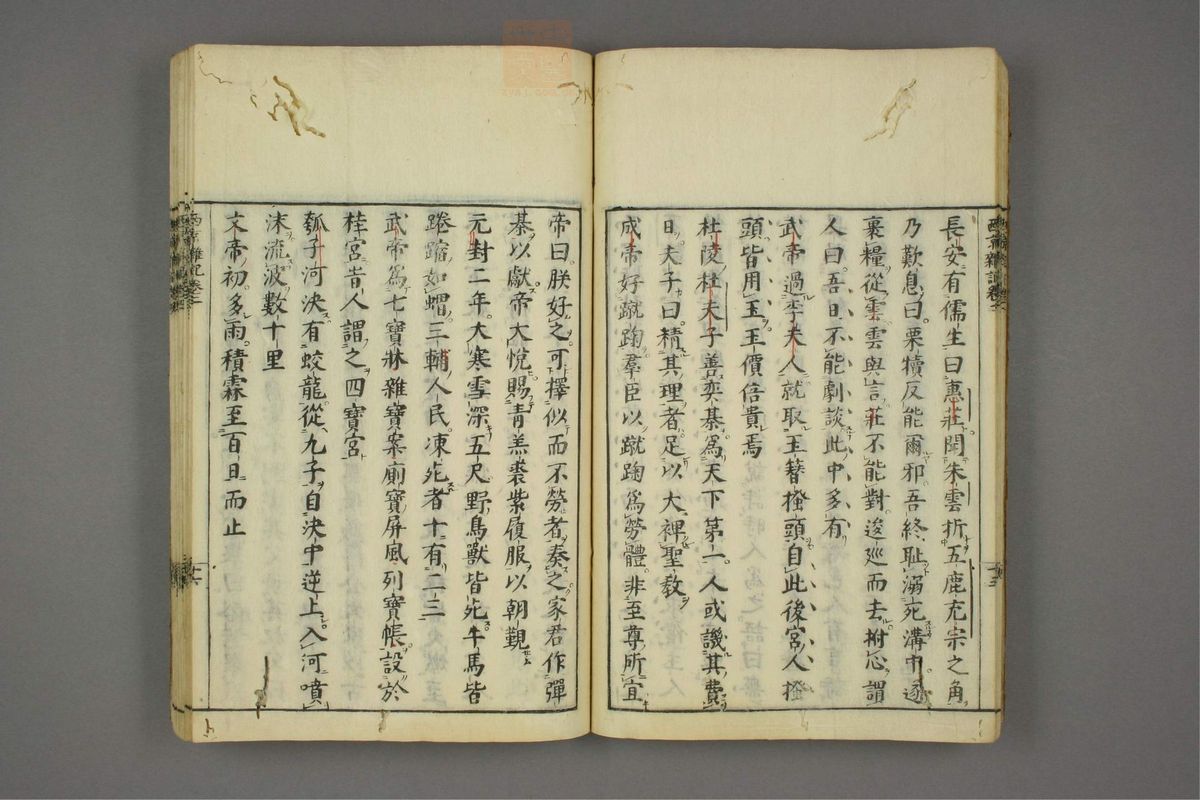 長安有儒生曰惠莊聞朱雲折五鹿充宗之角
乃歎息曰栗犢反能爾邪吾終耻溺死溝中遂
裹糧從雲雲與言莊不能對逡巡而去拊心謂
人曰吾口不能劇談此中多有
武帝過李夫人就取玉簪搔頭自此後宮人搔
頭皆用玉玉價倍貴焉
杜陵杜夫子善奕棊爲天下第一人或譏其費
日夫子曰精其理者足以大裨聖教
成帝好蹴踘羣臣以蹴踘爲勞體非至尊所宜
帝曰朕好之可擇似而不勞者奏之家君作彈
棊以獻帝大悅賜青羔裘紫履服以朝覲
元封二年大寒雪深五尺野鳥獸皆死牛馬皆
踡蹜如蝟三輔人民凍死者十有二三
武帝爲七寶牀雜寶案廁寶屏風列寶帳設於
桂宮告人謂之四寶宮
瓠子河決有蛟龍從九子自決中逆上入河噴
沫流波數十里
文帝初多雨積霖至百日而止